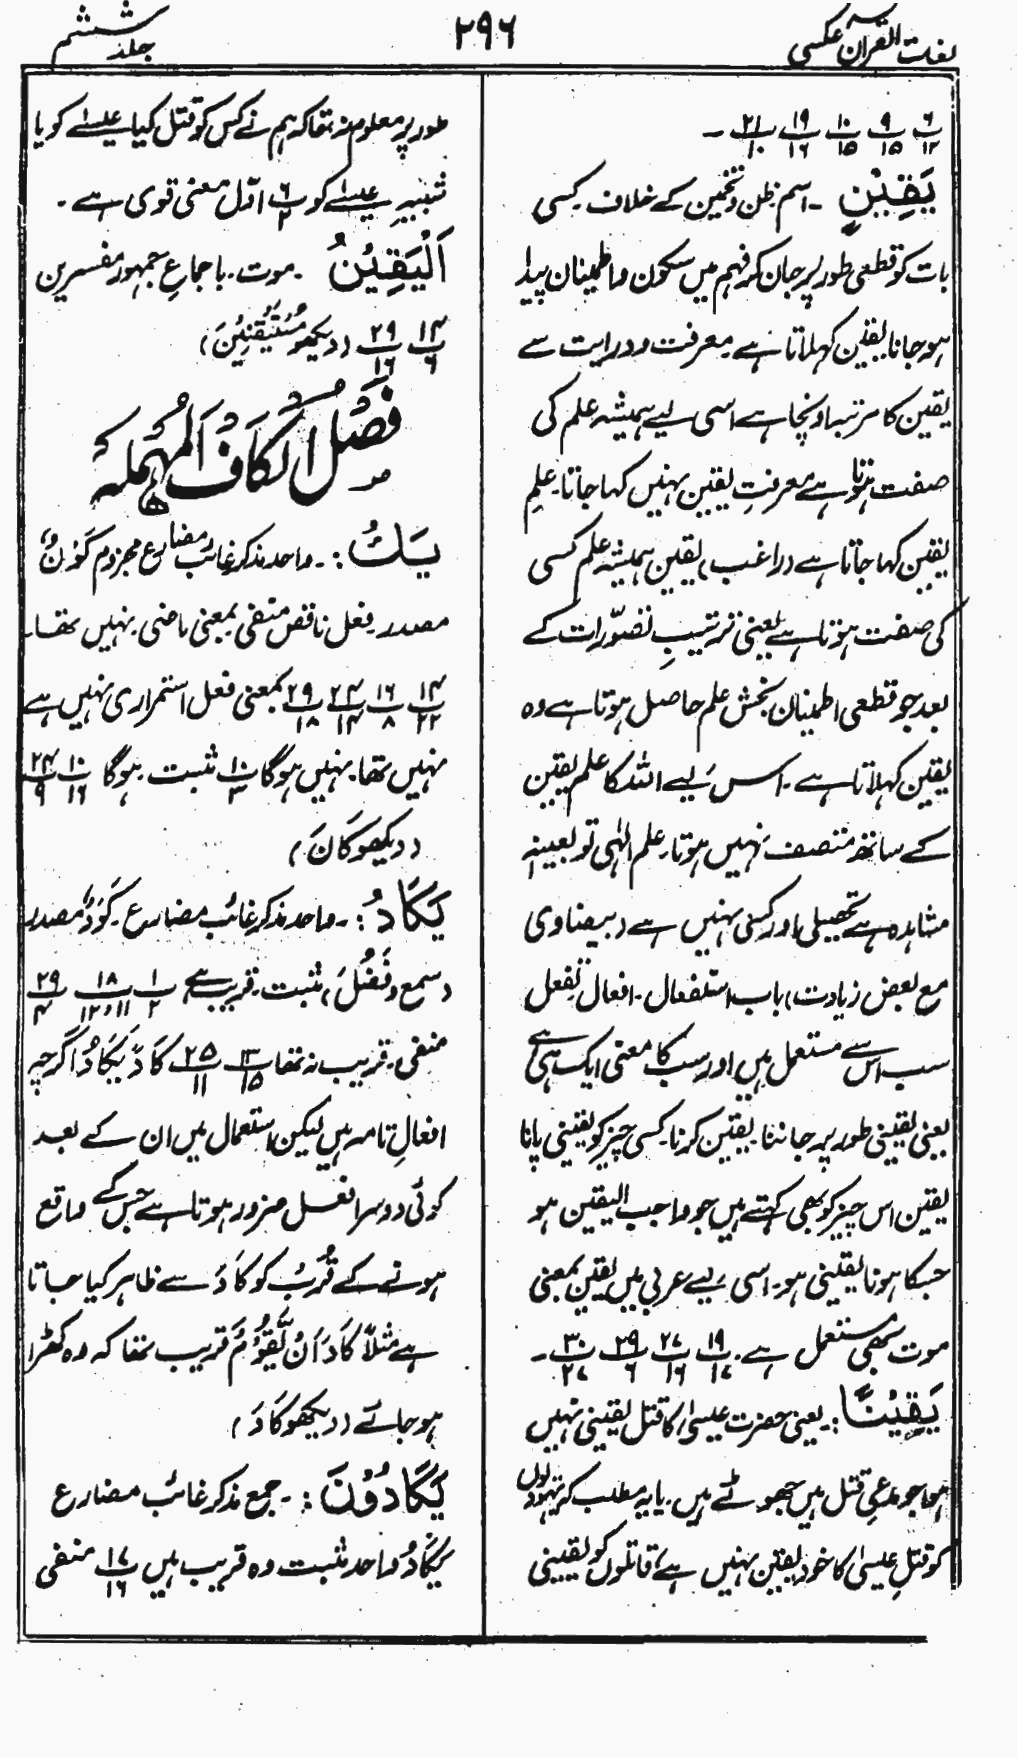 لغات القرآن عکسی
۲۹۶
جلد ششم
۶/۱۲ ۹/۱۵ ۱۰/۱۵ ۱۹/۱۶ ۲۱/۱۰ -
یَقِیْنٍ - اسم ظن و تخمین کے خلاف۔ کسی
بات کو قطعی طور پر جان کر فہم میں سکون و اطمینان پیدا
ہو جانا یقین کہلاتا ہے۔ معرفت و درایت سے
یقین کا مرتبہ اونچا ہے اسی لیے ہمیشہ علم کی
صفت ہوتا ہے معرفتِ یقین نہیں کہا جاتا۔ علمِ
یقین کہا جاتا ہے (راغب) یقین ہمیشہ علم کسی
کی صفت ہوتا ہے یعنی ترتیبِ تصوّرات کے
بعد جو قطعی اطمینان بخش علم حاصل ہوتا ہے وہ
یقین کہلاتا ہے۔ اس لیے اللہ کا علم یقین
کے ساتھ متصف نہیں ہوتا۔ علم الٰہی تو بعینہ
مشاہدہ ہے تحصیلی اور کسبی نہیں ہے (بیضاوی
مع بعض زیادت) باب استفعال۔ افعال تفعل
سب اس سے مستعمل ہیں اور سب کا معنی ایک ہی ہے
یعنی یقینی طور پر جاننا۔ یقین کرنا۔ کسی چیز کو یقینی پانا
یقین اس چیز کو بھی کہتے ہیں جو واجب الیقین ہو
جسکا ہونا یقینی ہو۔ اسی لیے عربی میں یقین بمعنی
موت بھی مستعمل ہے۔ ۱۹/۱۷ ۲۷/۱۶ ۲۹/۶ ۳۰/۲۷ -
یَقِیْنًا: یعنی حضرت عیسیٰ کا قتل یقینی نہیں
ہوا جو مدعیِ قتل ہیں جھوٹے ہیں۔ یا یہ مطلب کہ یہودیوں
کو قتلِ عیسیٰ کا خود یقین نہیں ہے قاتلوں کو یقینی
طور پر معلوم نہ تھا کہ ہم نے کس کو قتل کیا عیسےٰ کو یا
شبیہِ عیسےٰ کو ۶/۲ اوّل معنی قوی ہے۔
اَلْیَقِیْنُ - موت۔ باجماعِ جمہور مفسرین
۱۴/۶ ۲۹/۱۶ (دیکھو مُسْتَیْقِنِیْنَ)
فَصْلُ الْکَافِ الْمُہْمَلَہ
یَکُ:- واحد مذکر غائب مضارع مجزوم کَوْنٌ
مصدر۔ فعل ناقص منفی بمعنی ماضی۔ نہیں تھا۔
۱۴/۲۲ ۱۶/۸ ۲۴/۱۴ ۲۹/۱۸ بمعنی فعل استمراری نہیں ہے
نہیں تھا۔ نہیں ہوگا ۱۰/۳ مثبت۔ ہوگا ۱۰/۱۶ ۲۴/۹
(دیکھو کَانَ)
یَکَادُ:- واحد مذکر غائب مضارع۔ کَوْدٌ مصدر
(سمع و فَضُلَ) مثبت۔ قریب ہے ۱/۲ ۱۸/۱۲،۱۱ ۲۹/۴
منفی۔ قریب نہ تھا ۱۳/۱۵ ۲۵/۱۱ کَادَ یَکَادُ اگرچہ
افعالِ تامہ ہیں لیکن استعمال میں ان کے بعد
کوئی دوسرا فعل ضرور ہوتا ہے جس کے واقع
ہونے کے قُرْب کو کَادَ سے ظاہر کیا جاتا
ہے مثلاً کَادَ اَنْ یَّقُوْمَ قریب تھا کہ وہ کھڑا
ہو جائے (دیکھو کَادَ)
یَکَادُوْنَ:- جمع مذکر غائب مضارع
یَکَادُ واحد مثبت وہ قریب ہیں ۱۷/۱۶ منفی